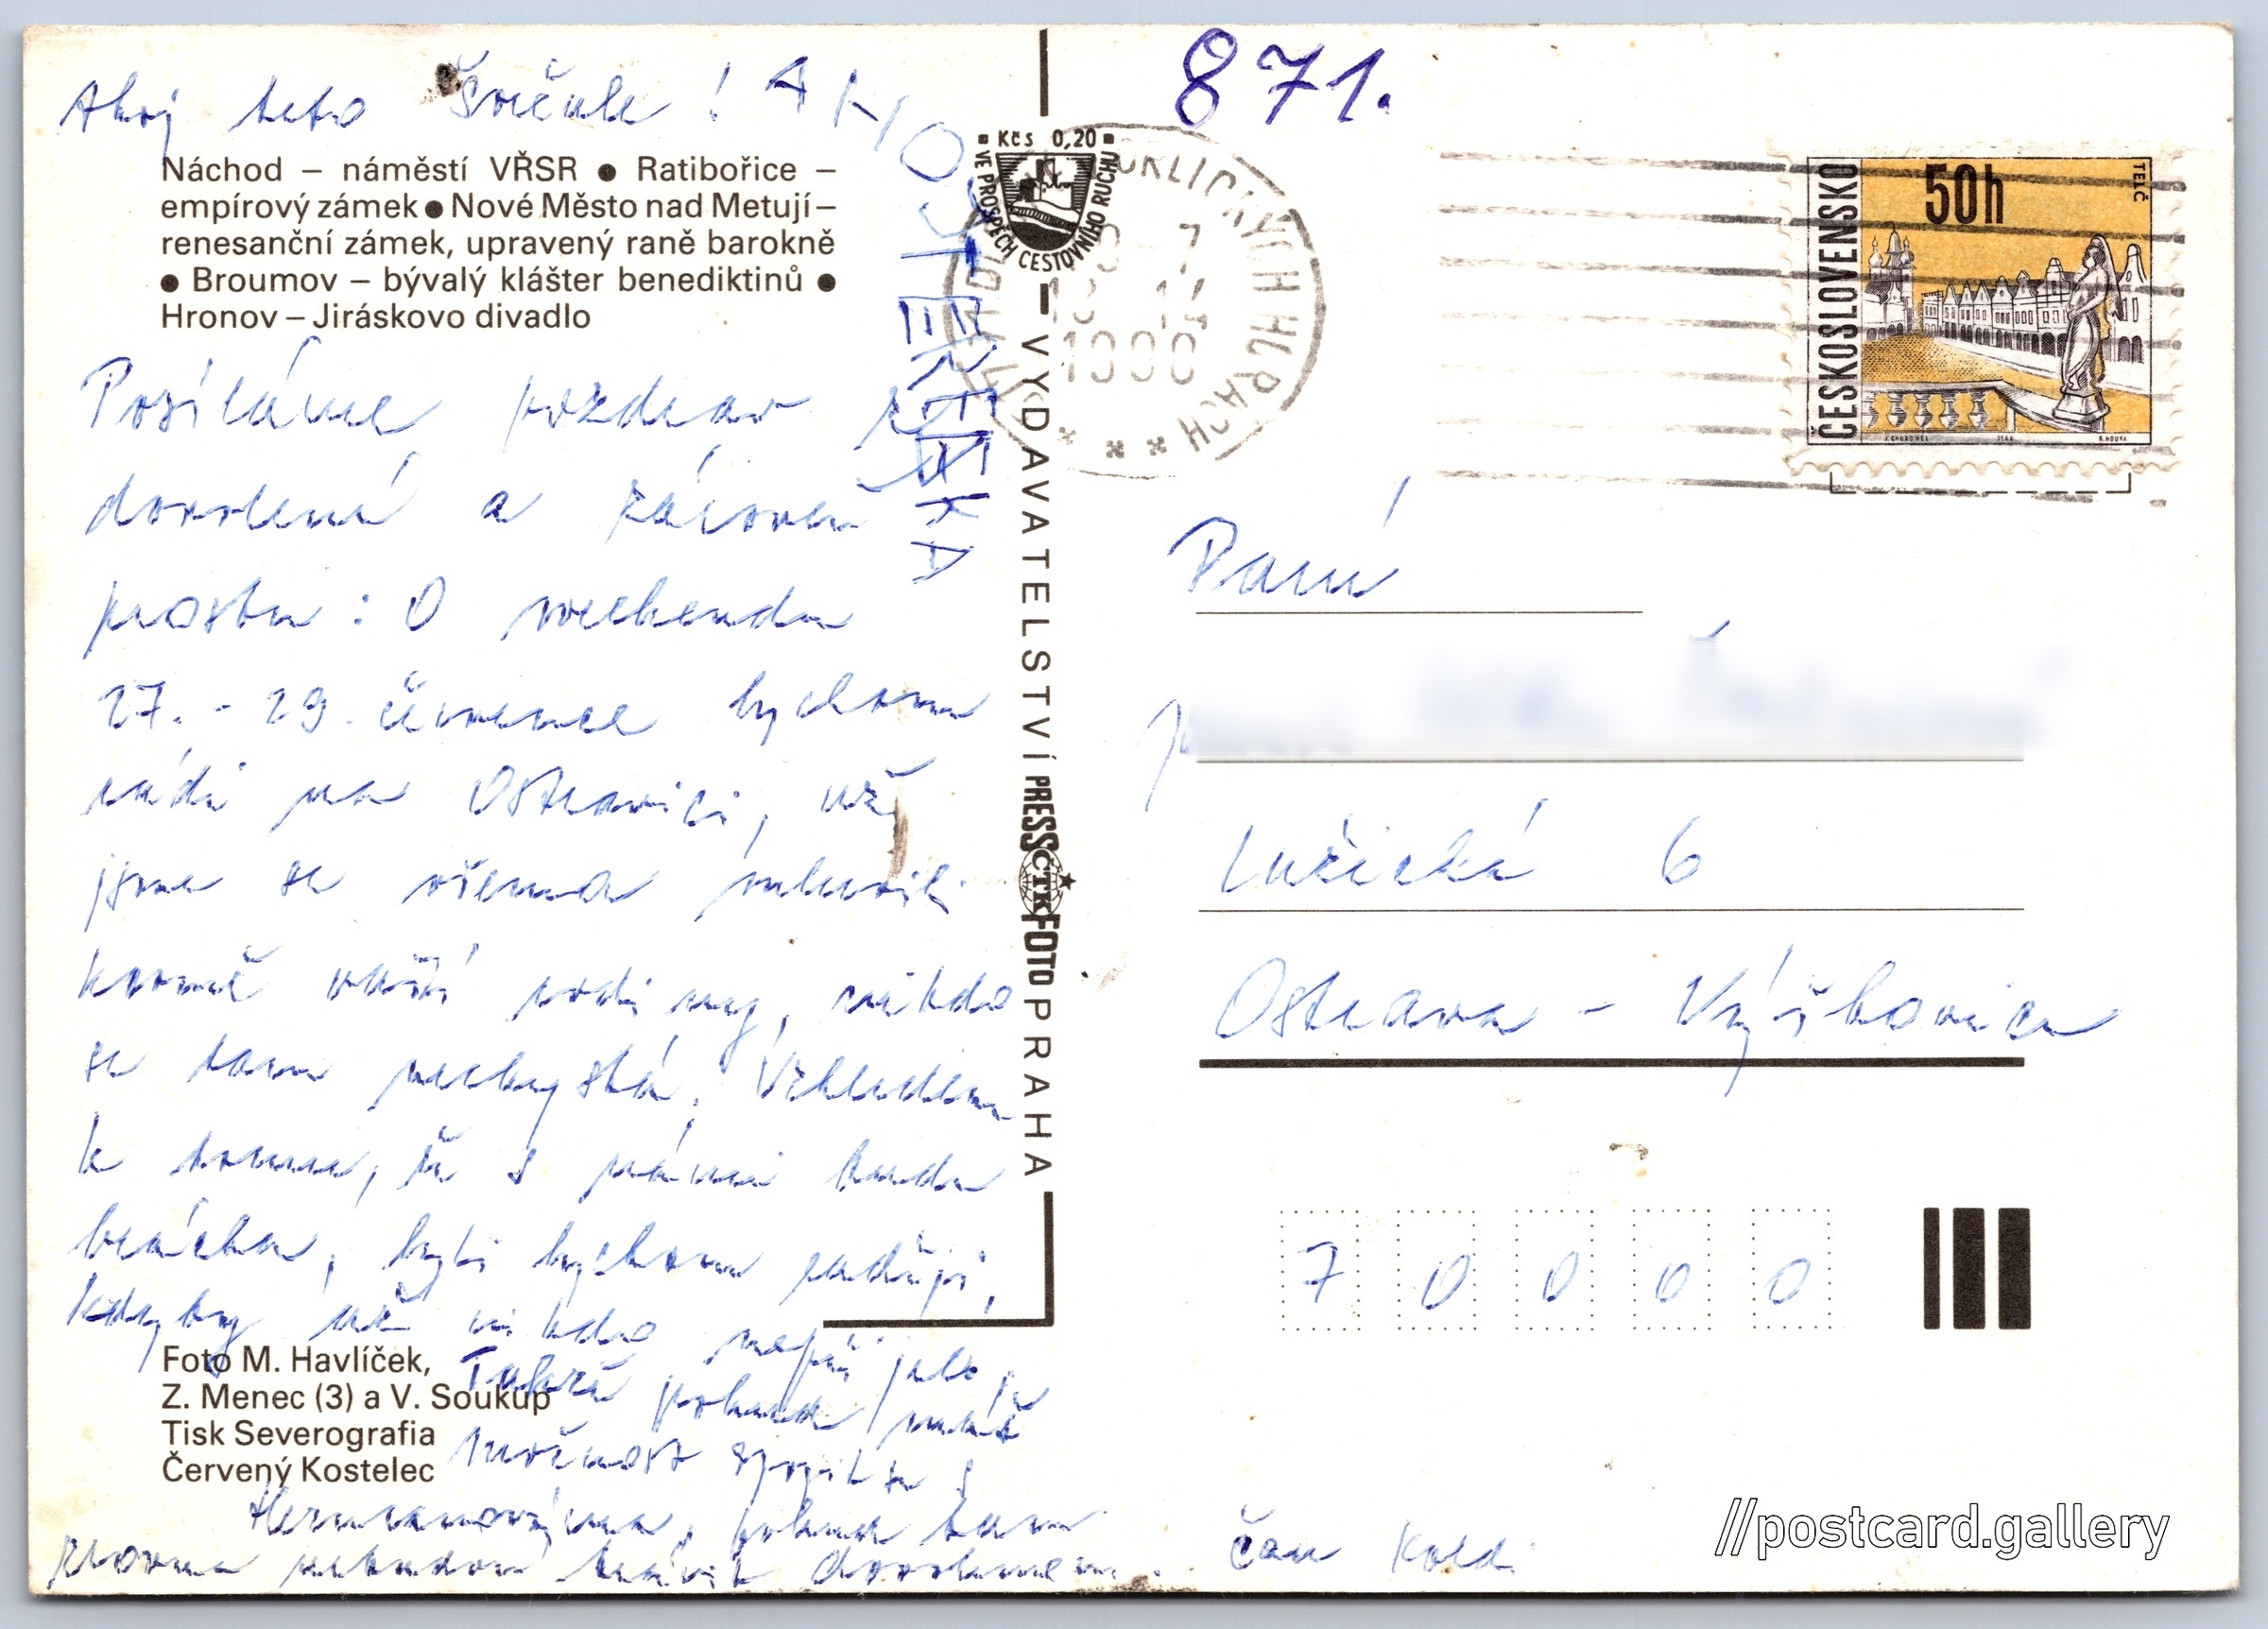 Ahoj teto Švičule!
AHOJ TERERKA
871.
Náchod – náměstí VŘSR ● Ratibořice –
empírový zámek ● Nové Město nad Metují –
renesanční zámek, upravený raně barokně
● Broumov – bývalý klášter benediktinů ●
Hronov – Jiráskovo divadlo
Posíláme pozdrav z
dovolené a zároveň
prosbu: O weekendu
27. - 29. července bychom
rádi na Ostravici, už
jsme se všema mluvili
kromě vaší rodiny, nikdo
se tam nechystá. Vzhledem
k tomu, že s námi bude
brácha, byli bychom radši,
kdyby už nikdo nepřijel,
Takže pokud máš
možnost spojit se s
pokud tam
zrovna nebudou trávit dovolenou.
Čau
Foto M. Havlíček,
Z. Menec (3) a V. Soukup
Tisk Severografia
Červený Kostelec
Kčs 0,20
VE PROSPĚCH CESTOVNÍHO RUCHU
VYDAVATELSTVÍ PRESSFOTO PRAHA
ČTK
ORLICKÝCH HORÁCH
ČESKOSLOVENSKO
50h
TELČ
Paní
Lužická 6
Ostrava - Výškovice
7 0 0 0 0
//postcard.gallery